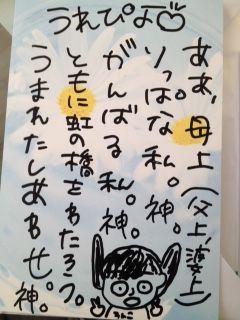 うれぴよ
ああ、母上(父上、婆上)
りっぱな私。神。
がんばる私。神。
ともに虹の橋をわたろう。
うまれたしあわせ。神。